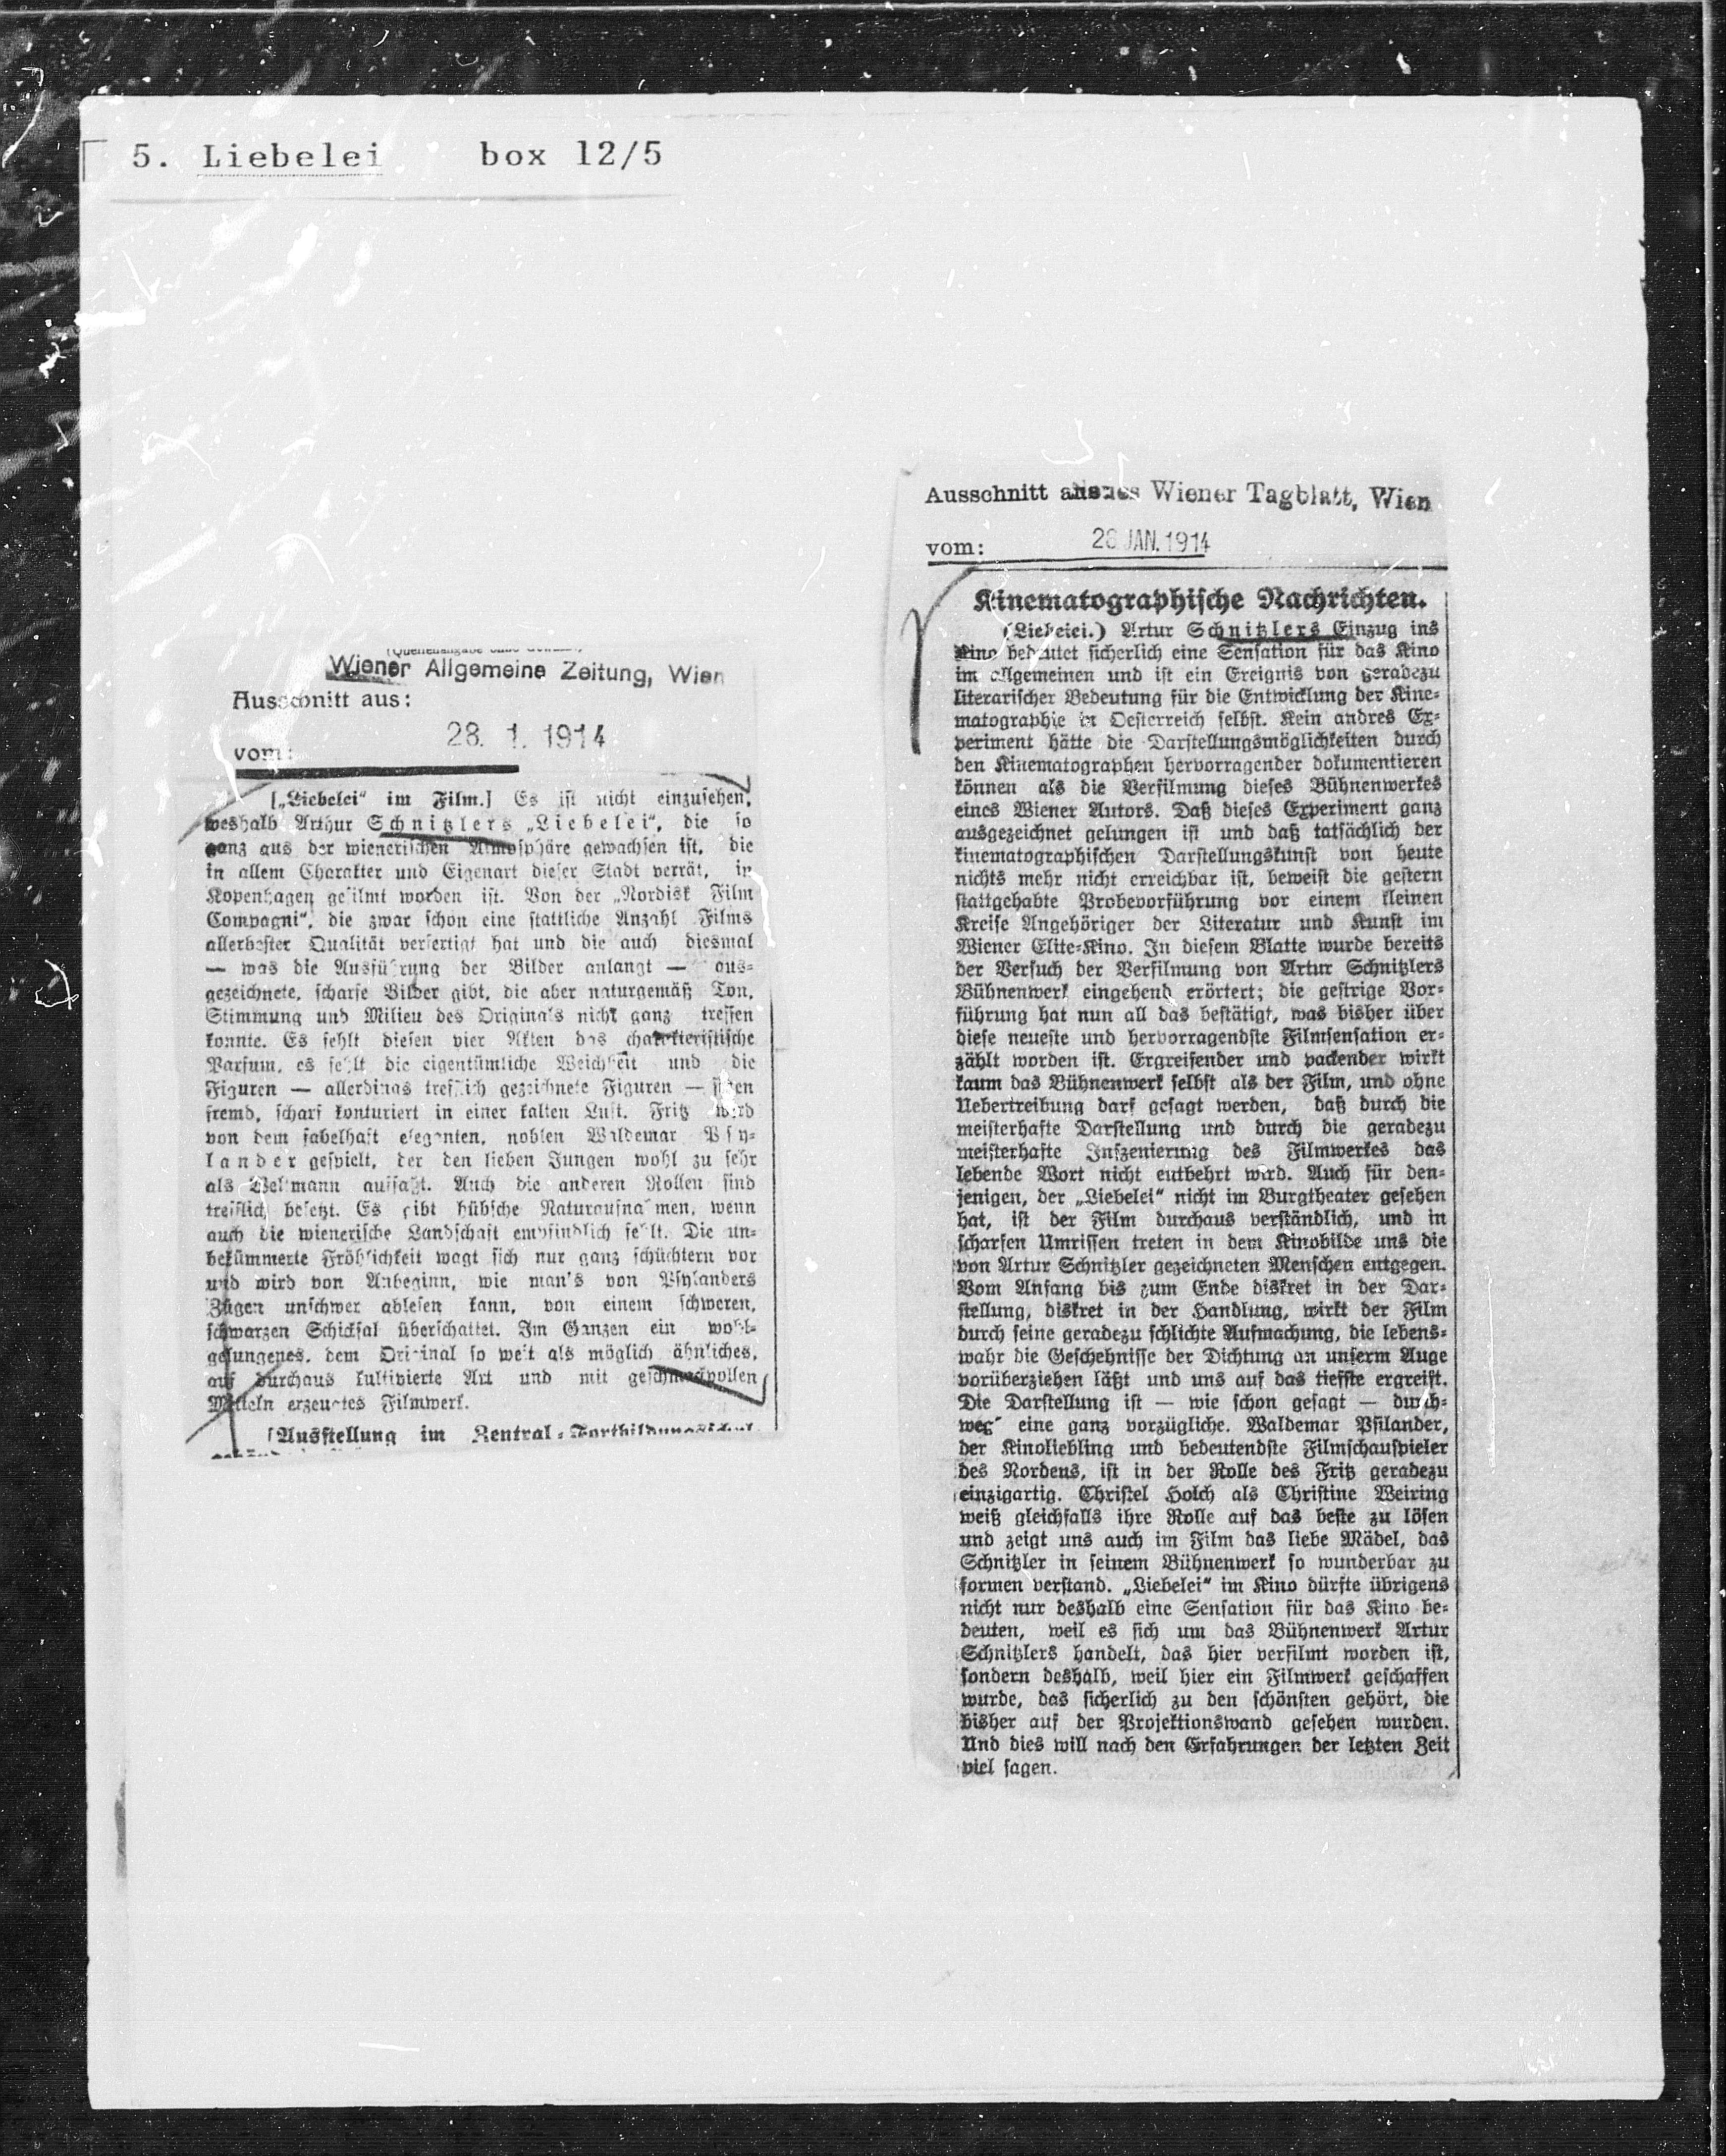 5. Liebelei box 12/5
Wiener Allgemeine Zeitung, Wien
Ausschnitt aus:
28. 1. 1914
vom:
[„Liebelei“ im Film.] Es ist nicht einzusehen,
weshalb Arthur Schnitzlers „Liebelei“, die so
ganz aus der wienerischen Atmosphäre gewachsen ist, die
in allem Charakter und Eigenart dieser Stadt verrät, in
Kopenhagen gefilmt worden ist. Von der „Nordisk Film
Compagni“, die zwar schon eine stattliche Anzahl Films
allerbester Qualität verfertigt hat und die auch diesmal
— was die Ausführung der Bilder anlangt — aus-
gezeichnete, scharfe Bilder gibt, die aber naturgemäß Ton,
Stimmung und Milieu des Originals nicht ganz treffen
konnte. Es fehlt diesen vier Akten das charakteristische
Parfum, es fehlt die eigentümliche Weichheit und die
Figuren — allerdings trefflich gezeichnete Figuren —
fremd, scharf konturiert in einer kalten Luft. Fritz wird
von dem fabelhaft eleganten, noblen Waldemar Psy-
lander gespielt, der den lieben Jungen wohl zu sehr
als Weltmann auffaßt. Auch die anderen Rollen sind
trefflich besetzt. Es gibt hübsche Naturaufnahmen, wenn
auch die wienerische Landschaft empfindlich fehlt. Die un-
bekümmerte Fröhlichkeit wagt sich nur ganz schüchtern vor
und wird von Anbeginn, wie man's von Psylanders
Zügen unschwer ablesen kann, von einem schweren,
schwarzen Schicksal überschattet. Im Ganzen ein wohl-
gelungenes, dem Original so weit als möglich ähnliches,
auf durchaus kultivierte Art und mit geschmackvollen
Mitteln erzeugtes Filmwerk.
[Ausstellung im Zentral-Fortbildungsschul-
Ausschnitt aus Wiener Tagblatt, Wien
vom: JAN. 1914
Kinematographische Nachrichten.
(Liebelei.) Artur Schnitzlers Einzug ins
Kino bedeutet sicherlich eine Sensation für das Kino
im allgemeinen und ist ein Ereignis von geradezu
literarischer Bedeutung für die Entwicklung der Kine-
matographie in Oesterreich selbst. Kein andres Ex-
periment hätte die Darstellungsmöglichkeiten durch
den Kinematographen hervorragender dokumentieren
können als die Verfilmung dieses Bühnenwerkes
eines Wiener Autors. Daß dieses Experiment ganz
ausgezeichnet gelungen ist und daß tatsächlich der
kinematographischen Darstellungskunst von heute
nichts mehr nicht erreichbar ist, beweist die gestern
stattgehabte Probevorführung vor einem kleinen
Kreise Angehöriger der Literatur und Kunst im
Wiener Elite-Kino. In diesem Blatte wurde bereits
der Versuch der Verfilmung von Artur Schnitzlers
Bühnenwerk eingehend erörtert; die gestrige Vor-
führung hat nun all das bestätigt, was bisher über
diese neueste und hervorragendste Filmsensation er-
zählt worden ist. Ergreifender und packender wirkt
kaum das Bühnenwerk selbst als der Film, und ohne
Uebertreibung darf gesagt werden, daß durch die
meisterhafte Darstellung und durch die geradezu
meisterhafte Inszenierung des Filmwerkes das
lebende Wort nicht entbehrt wird. Auch für den-
jenigen, der „Liebelei“ nicht im Burgtheater gesehen
hat, ist der Film durchaus verständlich, und in
scharfen Umrissen treten in dem Kinobilde uns die
von Artur Schnitzler gezeichneten Menschen entgegen.
Vom Anfang bis zum Ende diskret in der Dar-
stellung, diskret in der Handlung, wirkt der Film
durch seine geradezu schlichte Aufmachung, die lebens-
wahr die Geschehnisse der Dichtung an unserm Auge
vorüberziehen läßt und uns auf das tiefste ergreift.
Die Darstellung ist — wie schon gesagt — durch-
weg eine ganz vorzügliche. Waldemar Psilander,
der Kinoliebling und bedeutendste Filmschauspieler
des Nordens, ist in der Rolle des Fritz geradezu
einzigartig. Christel Holch als Christine Weiring
weiß gleichfalls ihre Rolle auf das beste zu lösen
und zeigt uns auch im Film das liebe Mädel, das
Schnitzler in seinem Bühnenwerk so wunderbar zu
formen verstand. „Liebelei“ im Kino dürfte übrigens
nicht nur deshalb eine Sensation für das Kino be-
deuten, weil es sich um das Bühnenwerk Artur
Schnitzlers handelt, das hier verfilmt worden ist,
sondern deshalb, weil hier ein Filmwerk geschaffen
wurde, das sicherlich zu den schönsten gehört, die
bisher auf der Projektionswand gesehen wurden.
Und dies will nach den Erfahrungen der letzten Zeit
viel sagen.